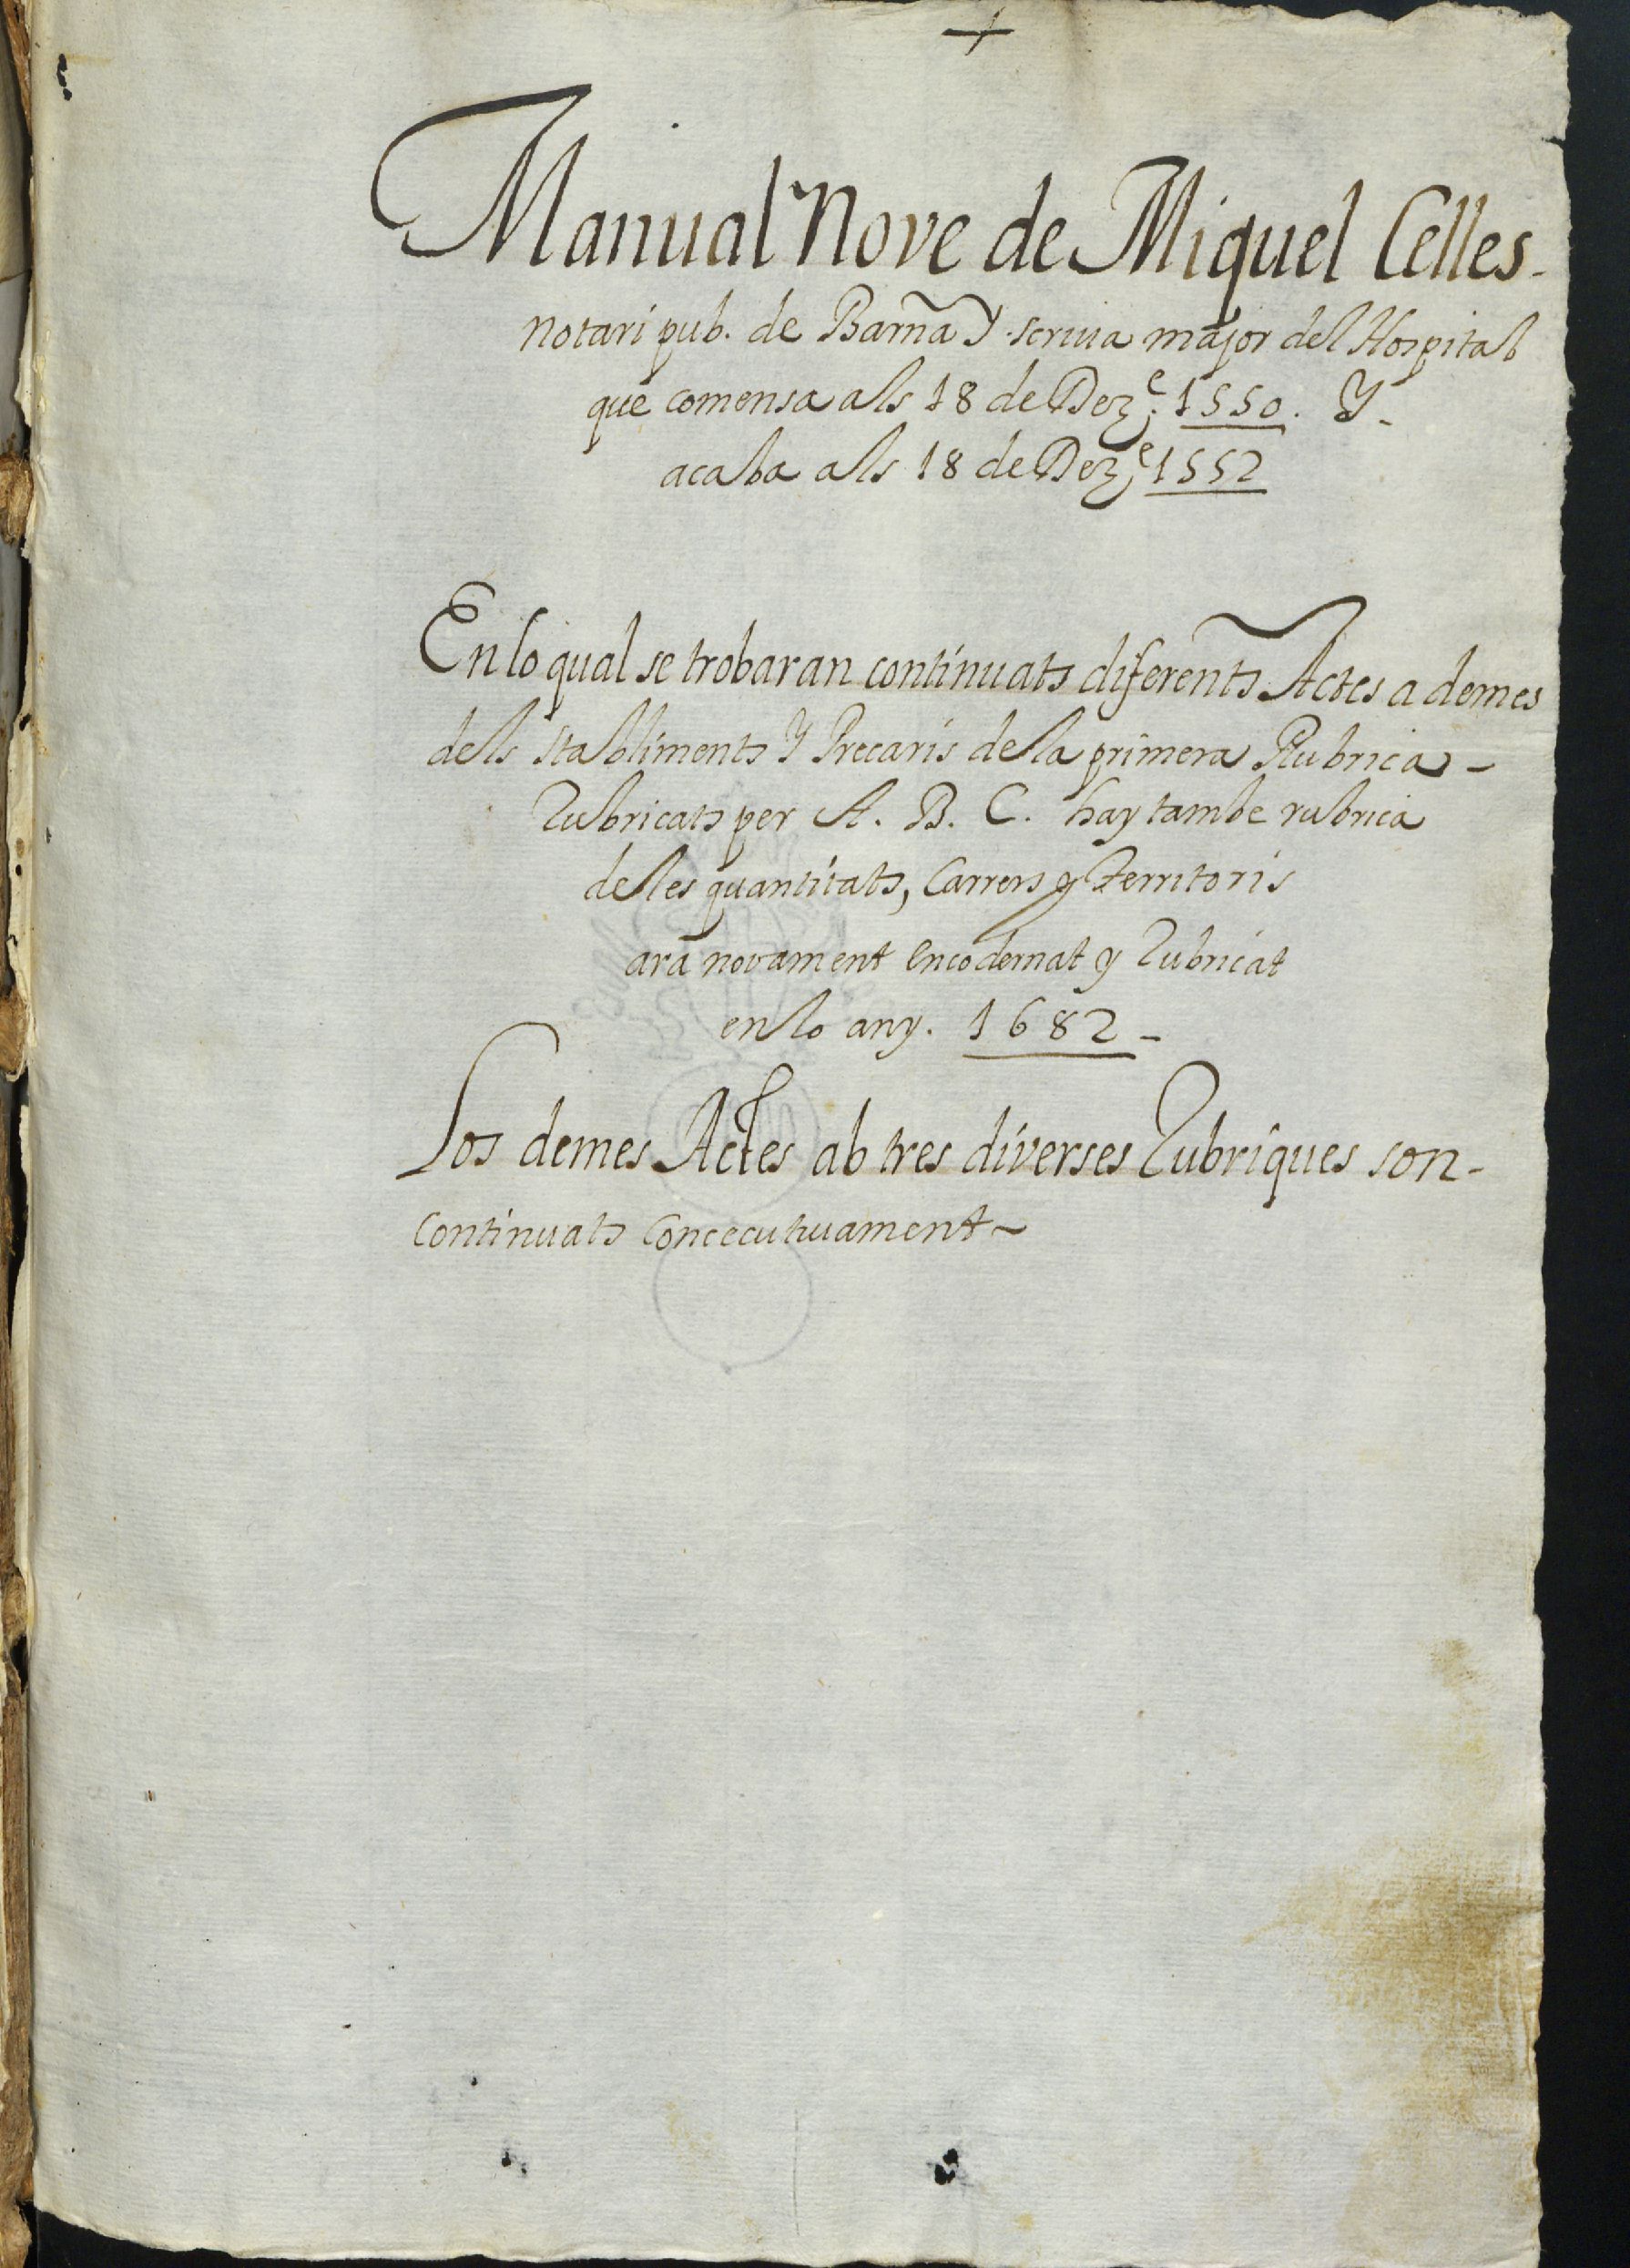 +
Manual Nove de Miquel Celles.
notari pub. de Barña Y scriua major del Hospital
que comensa als 18 de Dezᵉ. 1550. Y
acaba als 18 de Dezᵉ 1552
En lo qual se trobaran continuats diferents Actes a demes
dels stabliments Y Precaris de la primera Rubrica
Rubricats per A. B. C. hay tambe rubrica
de les quantitats, Carrers y Territoris
ara novament encodernat y Rubricat
en lo any. 1682
Los demes Actes ab tres diverses Rubriques son
continuats concecutiuament